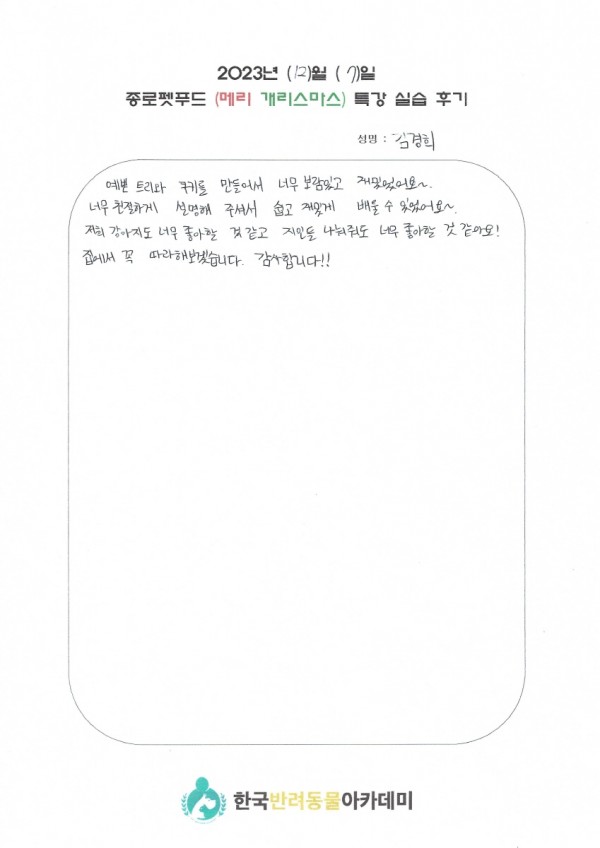 2023년 (12)월 (7)일
종로펫푸드 (메리 개리스마스) 특강 실습 후기
성명 : 김경희
예쁜 트리와 쿠키를 만들어서 너무 보람있고 재밌었어요~.
너무 친절하게 설명해 주셔서 쉽고 재밌게 배울 수 있었어요~.
저희 강아지도 너무 좋아할 것 같고 지인들 나눠줘도 너무 좋아할 것 같아요!
집에서 꼭 따라해보겠습니다. 감사합니다!!
한국반려동물아카데미